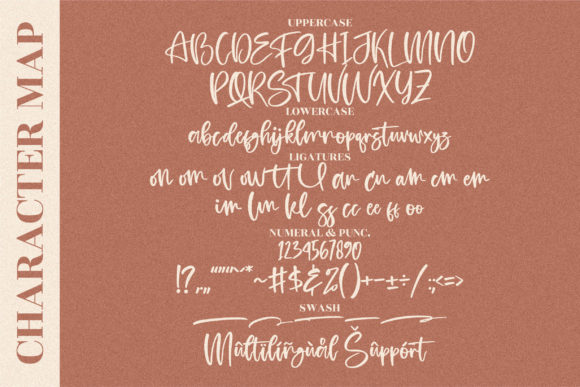 CHARACTER MAP
UPPERCASE
ABCDEFGHIJKLMNO
PQRSTUVWXYZ
LOWERCASE
abcdefghijklmnopqrstuvwxyz
LIGATURES
on om ov ow tt ll ar cn am cm em
im ln kl ss cc ee ff oo
NUMERAL & PUNC.
1234567890
!?.,, "''"~* ~#$&%()+-±÷/:;<=>
SWASH
Mûltïlíñgùål Šûppórt